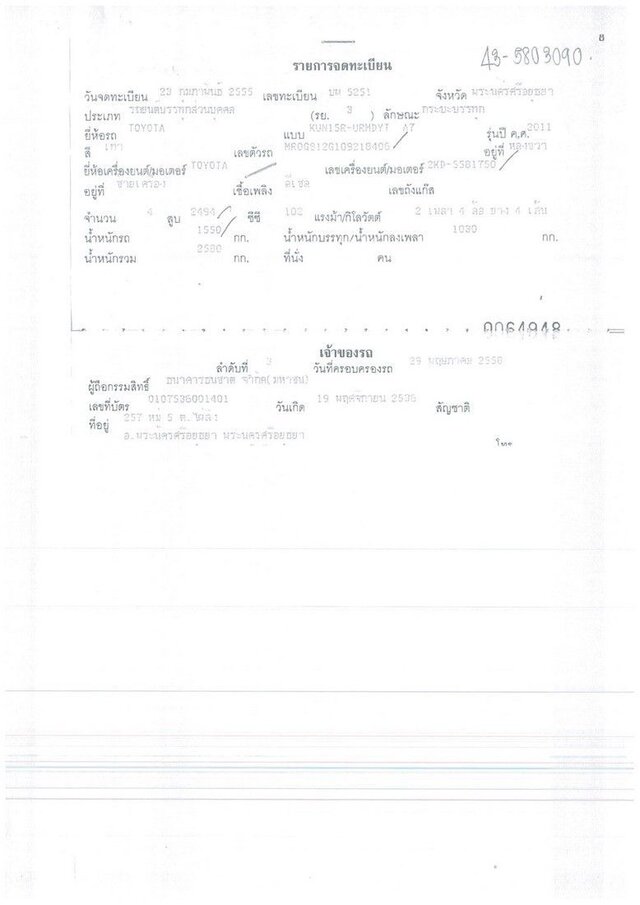 8
43-5803090.
รายการจดทะเบียน
วันจดทะเบียน 23 กุมภาพันธ์ 2555 เลขทะเบียน บห 5251 จังหวัด พระนครศรีอยุธยา
ประเภท รถยนต์บรรทุกส่วนบุคคล (รย. 3 ) ลักษณะ กระบะบรรทุก
ยี่ห้อรถ TOYOTA แบบ KUN15R-URMDYT A7 รุ่นปี ค.ศ. 2011
สี เทา เลขตัวรถ อยู่ที่
ยี่ห้อเครื่องยนต์/มอเตอร์ TOYOTA เลขเครื่องยนต์/มอเตอร์ 2KD-S581750
อยู่ที่ ซ้ายเครื่อง เชื้อเพลิง ดีเซล เลขถังแก๊ส
จำนวน 4 สูบ 2494 ซีซี 102 แรงม้า/กิโลวัตต์ 2 เพลา 4 ล้อ ยาง 4 เส้น
น้ำหนักรถ 1550 กก. น้ำหนักบรรทุก/น้ำหนักลงเพลา 1030 กก.
น้ำหนักรวม 2580 กก. ที่นั่ง คน
0064948
เจ้าของรถ
ลำดับที่ 3 วันที่ครอบครองรถ 29 พฤษภาคม 2558
ผู้ถือกรรมสิทธิ์ ธนาคารธนชาต จำกัด(มหาชน)
เลขที่บัตร 0107536001401 วันเกิด 19 พฤศจิกายน 2536 สัญชาติ
ที่อยู่ 257 หมู่ 5
อ.พระนครศรีอยุธยา พระนครศรีอยุธยา
โทร